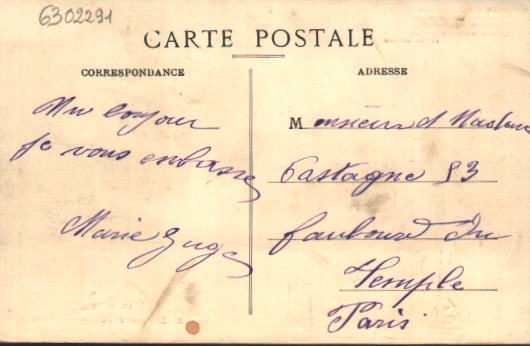 6302291
CARTE POSTALE
CORRESPONDANCE
ADRESSE
Un bonjour
je vous embrasse
Marie
Monsieur et Madame
Castagne 93
faubourd du
Temple
Paris